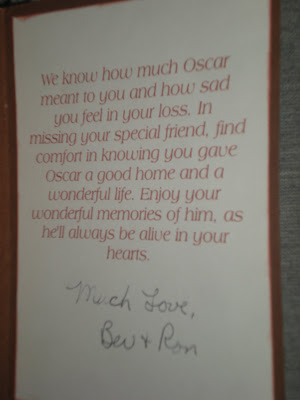 We know how much Oscar
meant to you and how sad
you feel in your loss. In
missing your special friend, find
comfort in knowing you gave
Oscar a good home and a
wonderful life. Enjoy your
wonderful memories of him, as
he'll always be alive in your
hearts.
Much Love,
Bev + Ron